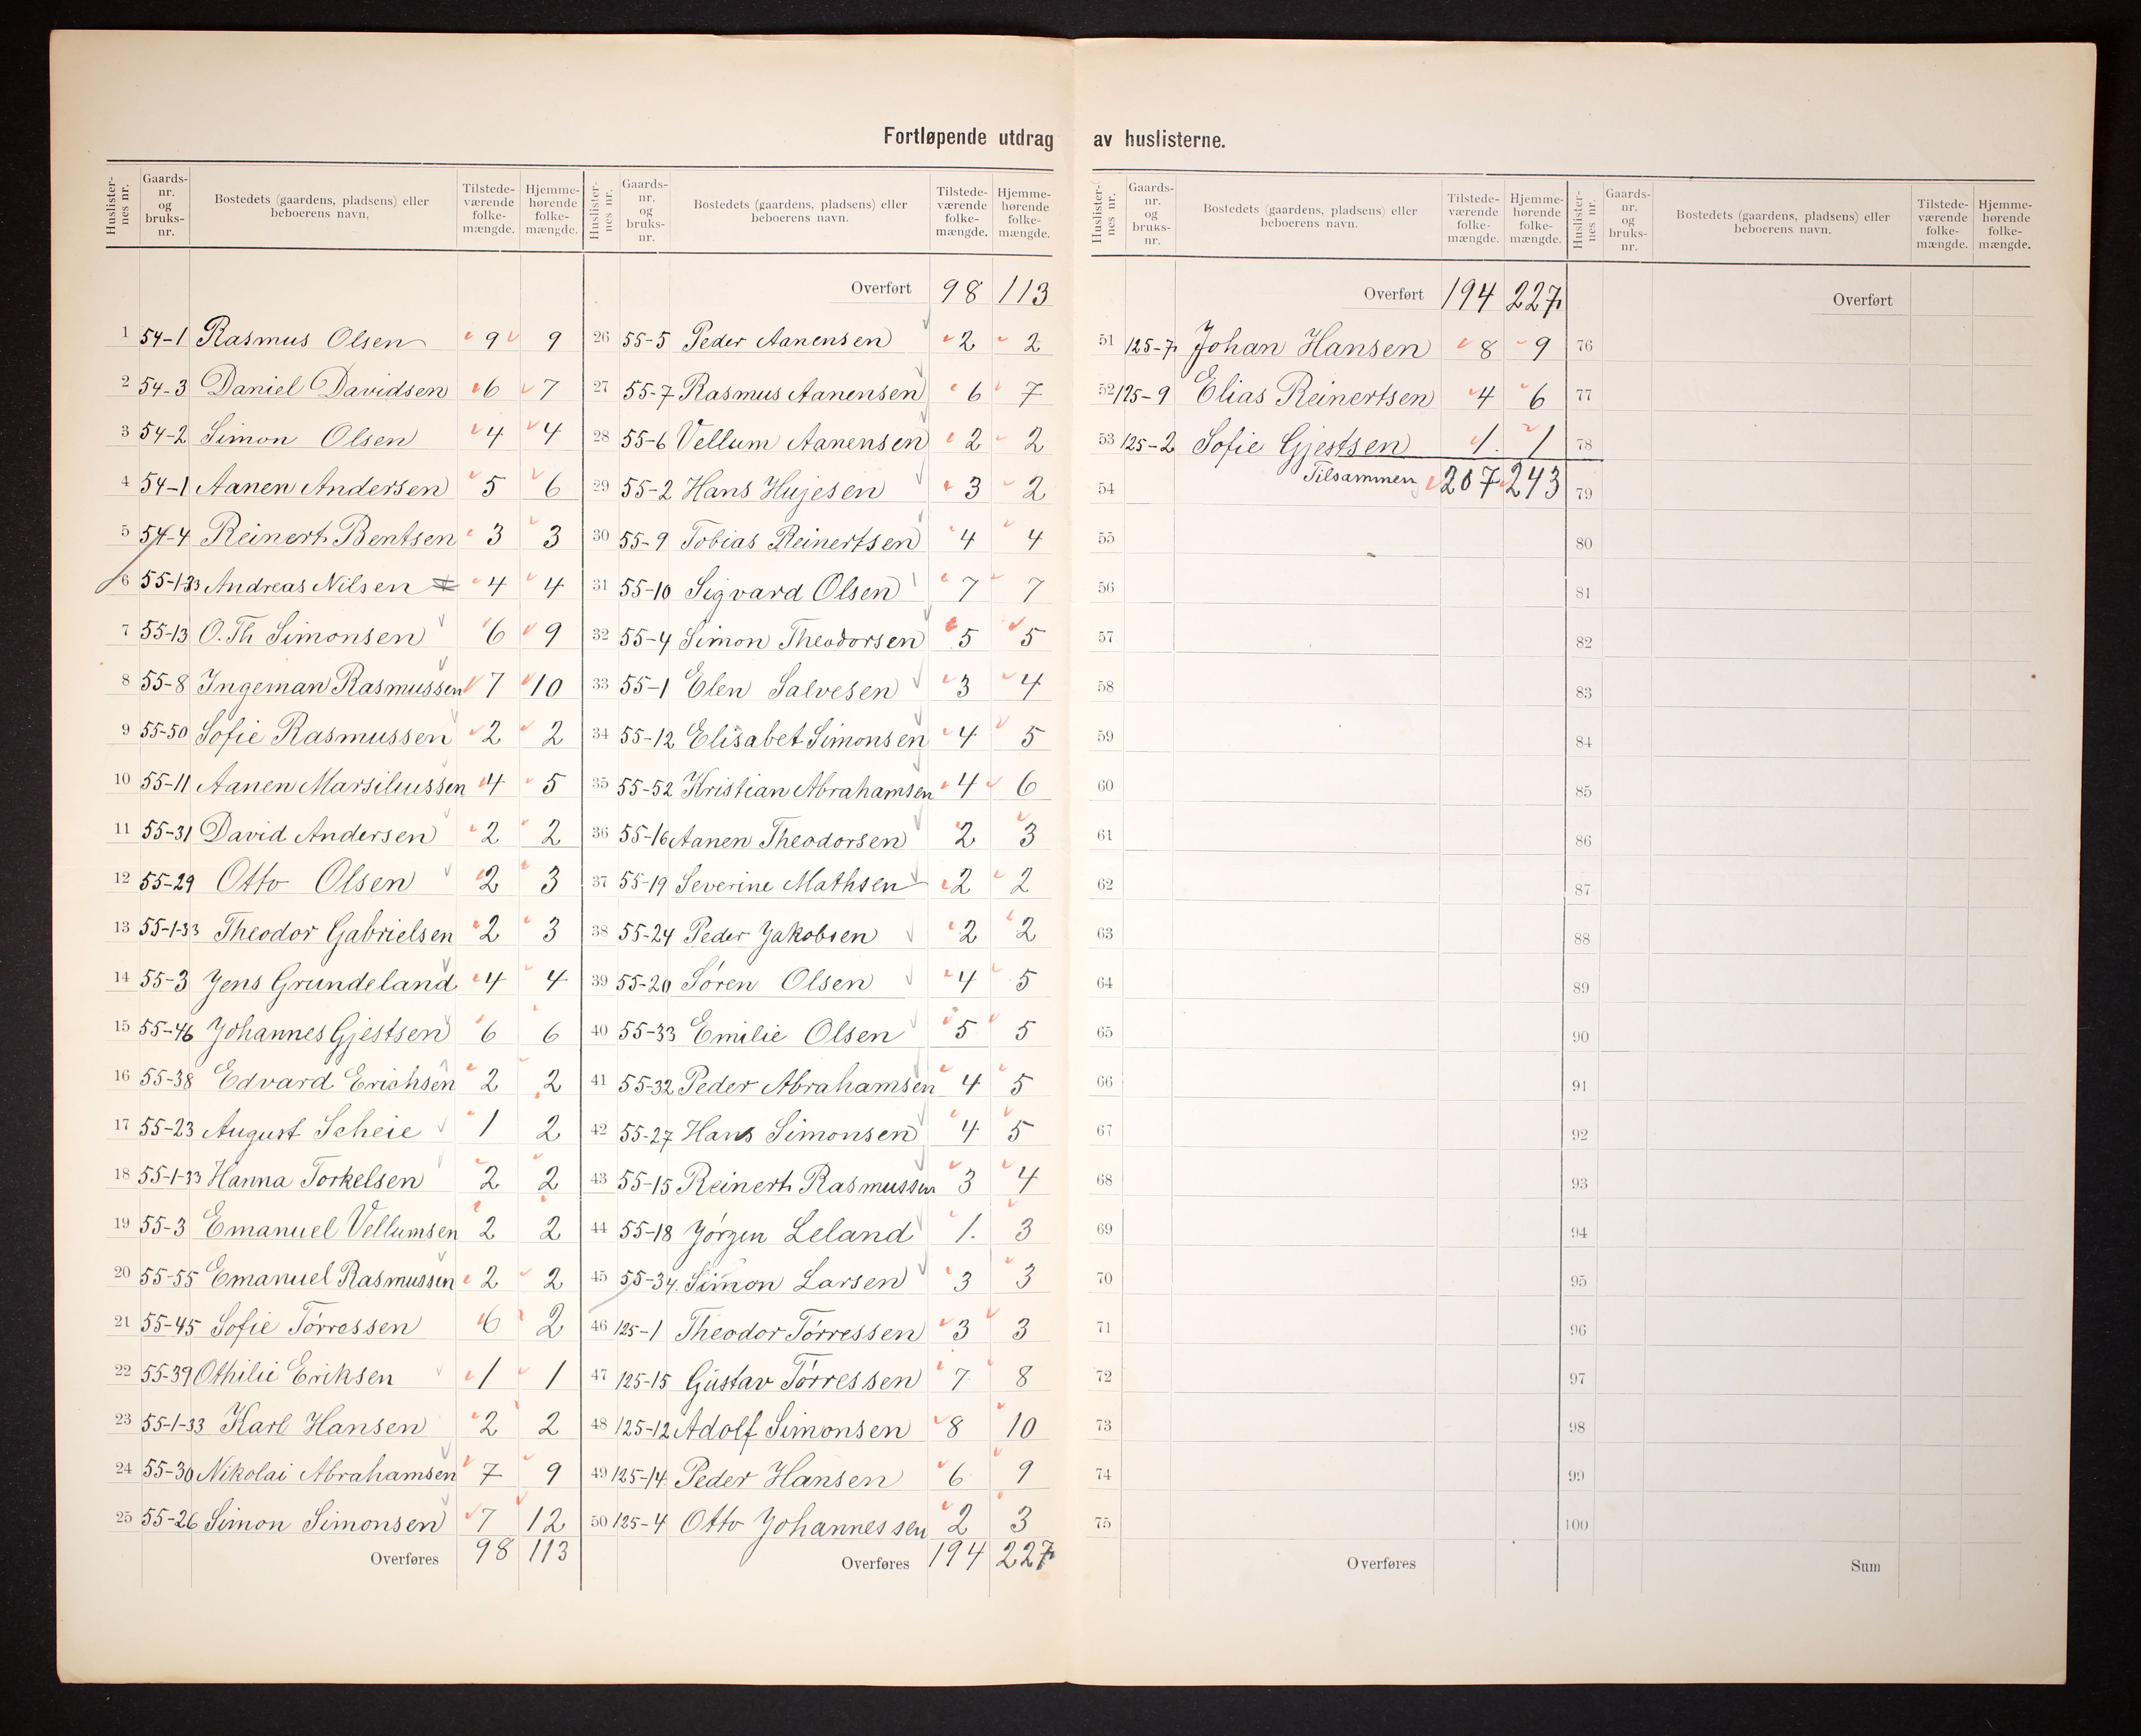 Fortløpende utdrag av huslisternes.
Huslister-nes nr. Gaards-nr. og bruks-nr. Bostedets (gaardens, pladsens) eller beboerens navn. Tilstede-værende folke-mængde. Hjemme-hørende folke-mængde.
1 54-1 Rasmus Olsen 9 9
2 54-3 Daniel Davidsen 6 7
3 54-2 Simon Olsen 4 4
4 54-1 Aanen Andersen 5 6
5 54-4 Reinert Bentsen 3 3
6 55-1-33 Andreas Nilsen 4 4
7 55-13 O. Th Simonsen 6 9
8 55-8 Ingeman Rasmussen 7 10
9 55-50 Sofie Rasmussen 2 2
10 55-11 Aanen Marsiliussen 4 5
11 55-31 David Andersen 2 2
12 55-29 Otto Olsen 2 3
13 55-1-33 Theodor Gabrielsen 2 3
14 55-3 Jens Grundeland 4 4
15 55-46 Johannes Gjestsen 6 6
16 55-38 Edvard Erichsen 2 2
17 55-23 August Scheie 1 2
18 55-1-33 Hanna Torkelsen 2 2
19 55-3 Emanuel Vellumsen 2 2
20 55-55 Emanuel Rasmussen 2 2
21 55-45 Sofie Tørressen 6 2
22 55-39 Othilie Eriksen 1 1
23 55-1-33 Karl Hansen 2 2
24 55-30 Nikolai Abrahamsen 7 9
25 55-26 Simon Simonsen 7 12
Overføres 98 113
Huslister-nes nr. Gaards-nr. og bruks-nr. Bostedets (gaardens, pladsens) eller beboerens navn. Tilstede-værende folke-mængde. Hjemme-hørende folke-mængde.
Overført 98 113
26 55-5 Peder Aanensen 2 2
27 55-7 Rasmus Aanensen 6 7
28 55-6 Vellum Aanensen 2 2
29 55-2 Hans Hujesen 3 2
30 55-9 Tobias Reinertsen 4 4
31 55-10 Sigvard Olsen 7 7
32 55-4 Simon Theodorsen 5 5
33 55-1 Elen Salvesen 3 4
34 55-12 Elisabet Simonsen 4 5
35 55-52 Kristian Abrahamsen 4 6
36 55-16 Aanen Theodorsen 2 3
37 55-19 Severine Mathsen 2 2
38 55-24 Peder Jakobsen 2 2
39 55-20 Søren Olsen 4 5
40 55-33 Emilie Olsen 5 5
41 55-32 Peder Abrahamsen 4 5
42 55-27 Hans Simonsen 4 5
43 55-15 Reinert Rasmussen 3 4
44 55-18 Jørgen Leland 1. 3
45 55-34. Simon Larsen 3 3
46 125-1 Theodor Tørressen 3 3
47 125-15 Gustav Tørressen 7 8
48 125-12 Adolf Simonsen 8 10
49 125-14 Peder Hansen 6 9
50 125-4 Otto Johannessen 2 3
Overføres 194 227
Huslister-nes nr. Gaards-nr. og bruks-nr. Bostedets (gaardens, pladsens) eller beboerens navn. Tilstede-værende folke-mængde. Hjemme-hørende folke-mængde.
Overført 194 227
51 125-7 Johan Hansen 8 9
52 125-9 Elias Reinertsen 4 6
53 125-2 Sofie Gjestsen 1. 1
54 Tilsammen 207 243
55
56
57
58
59
60
61
62
63
64
65
66
67
68
69
70
71
72
73
74
75
Overføres
Huslister-nes nr. Gaards-nr. og bruks-nr. Bostedets (gaardens, pladsens) eller beboerens navn. Tilstede-værende folke-mængde. Hjemme-hørende folke-mængde.
Overført
76
77
78
79
80
81
82
83
84
85
86
87
88
89
90
91
92
93
94
95
96
97
98
99
100
Sum